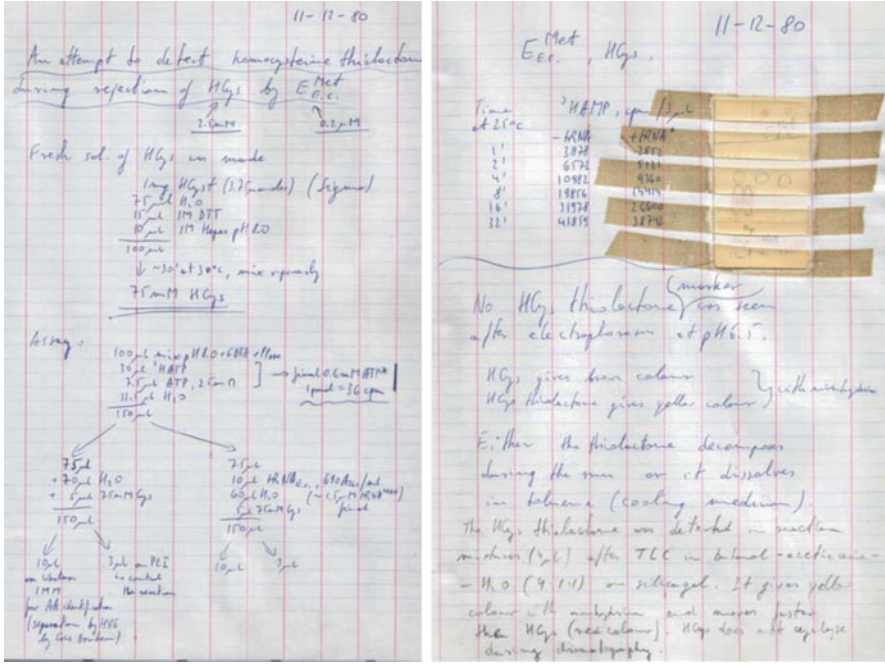 11-12-80
An attempt to detect homocysteine thiolactone
during rejection of HCys by E Met E.c.
2.5mM 0.2µM
Fresh sol. of HCys was made
1mg HCyst (Sigma)
75µl H2O
15µl 1M DTT
10µl 1M Hepes pH 8.0
100µl
↓ ~30' at 30°C, mix vigorously
75mM HCys
Assay:
100µl mix pH 8.0 +
30µl 3HATP
7.5µl ATP, 25mM
12.5µl H2O
150µl
→ final 0.6mM ATP
1pmol = 36 cpm
75µl
+ 70µl H2O
+ 5µl 75mM HCys
150µl
75µl
10µl tRNA E.c.,
60µl H2O
5µl 75mM HCys
150µl
final
10µl
on Whatman
1MM
for AA identification
(separation by HVE
3µl on PEI
to control
the reaction
10µl 3µl
11-12-80
E Met E.c., HCys,
Time
at 25°C
3HAMP, cpm/3µl
-tRNA +tRNA
1' 3878
2' 6572
4' 10982 9360
8' 19856
16' 31978 26600
32' 41859 38742
No HCys thiolactone (marker) was seen
after electrophoresis at pH 6.5.
HCys gives brown colour
HCys thiolactone gives yellow colour } with ninhydrin
Either the thiolactone decomposes
during the run or it dissolves
in toluene (cooling medium).
The HCys thiolactone was detected in reaction
mixtures (4µl) after TLC in butanol-acetic acid-
- H2O (4:1:1) on silicagel. It gives yellow
colour with ninhydrin and moves faster
then HCys (red colour). HCys does not cyclyse
during chromatography.